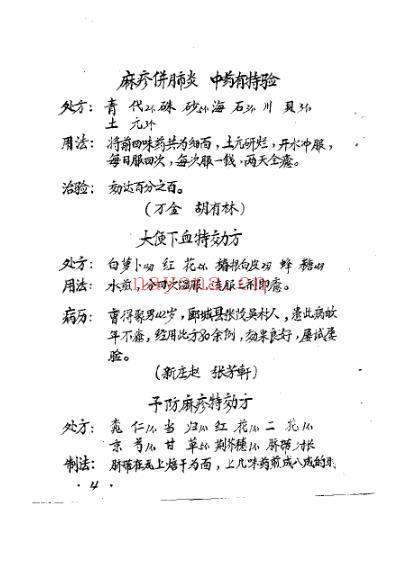 麻疹併肺炎 中药有特验
处方: 青代 硃砂 海石 川貝
土元
用法: 将前四味药共为细面,土元研烂,开水冲服,
每日服四次,每次服一钱,两天全癒。
治验: 効达百分之百。
(万金 胡有林)
大便下血特効方
处方: 白萝卜 红花 椿根白皮 蜂糖
用法: 水煎 分四次温服 连服三剂即癒。
nayona.cn
病历: 曹得聚男42岁,郾城县张 吴村人,患此病
年不癒,经用此方30余例,効果良好,屡试屡
验。
(新庄赵 张芳軒)
予防麻疹特効方
处方: 桃仁 当归 红花 二花
京芍 甘草 荆芥穗 脐带
制法: 脐带在瓦上焙干为面,上几味药煎成八成的
·4·